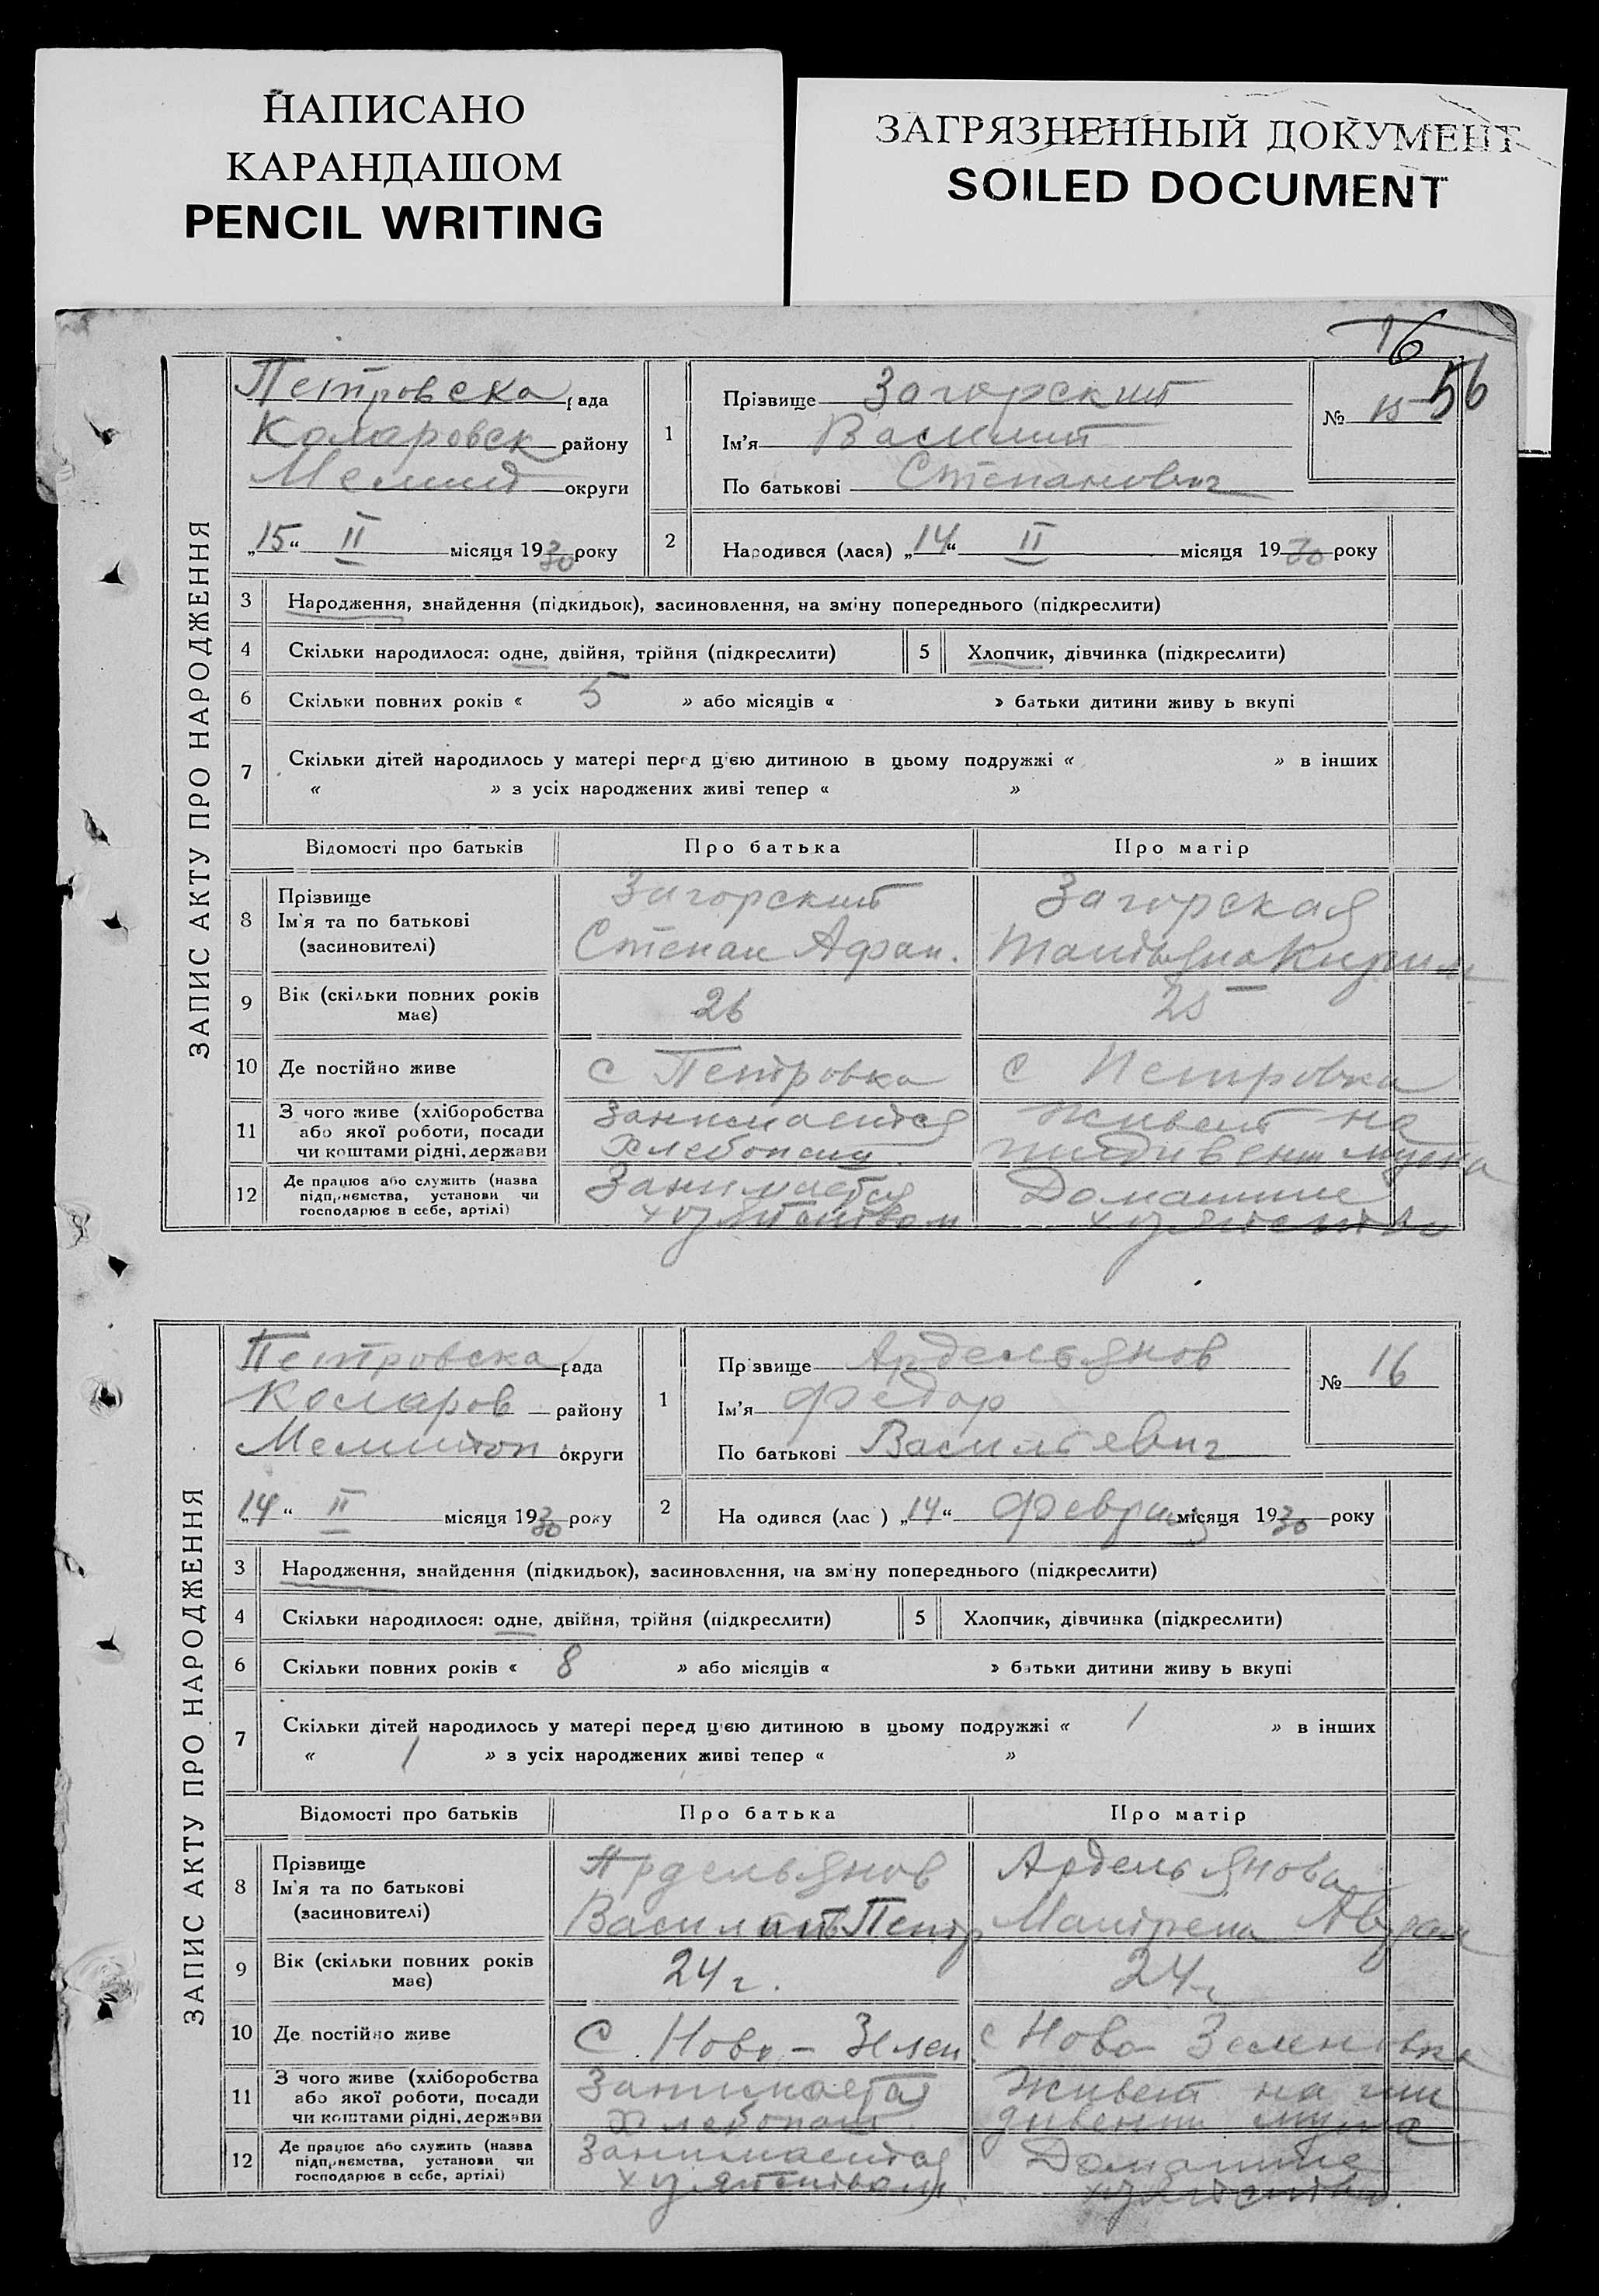 НАПИСАНО
КАРАНДАШОМ
PENCIL WRITING
ЗАГРЯЗНЕННЫЙ ДОКУМЕНТ
SOILED DOCUMENT
16
56
ЗАПИС АКТУ ПРО НАРОДЖЕННЯ
Петровска рада
Коларовск району
Мелит округи
„15“ II місяця 1930 року
1
Прізвище Загорский
Ім'я Василий
По батькові Степанович
№ 15
2 Народився (лася) „14“ II місяця 1930 року
3 Народження, знайдення (підкидьок), засиновлення, на зміну попереднього (підкреслити)
4 Скільки народилося: одне, двійня, трійня (підкреслити) 5 Хлопчик, дівчинка (підкреслити)
6 Скільки повних років « 5 » або місяців « » батьки дитини живу ь вкупі
7 Скільки дітей народилось у матері перед цією дитиною в цьому подружжі « » в інших
« » з усіх народжених живі тепер « »
Відомості про батьків Про батька Про матір
8 Прізвище
Ім'я та по батькові
(засновителі)
Загорский
Степан Афан.
Загорская
Татьяна
9 Вік (скільки повних років
має)
26
25
10 Де постійно живе с Петровка с Петровка
11 З чого живе (хліборобства
або якої роботи, посади
чи коштами рідні, держави
Занимается
хлебопаш
живет на
иждивении мужа
12 Де працює або служить (назва
підприємства, установи чи
господарює в себе, артілі)
Занимается
хозяйством
Домашнее
хозяйство
ЗАПИС АКТУ ПРО НАРОДЖЕННЯ
Петровска рада
Коларов району
Мелитоп округи
„14“ II місяця 1930 року
1
Пр звище Ардельянов
Ім'я Федор
По батькові Васильевич
№ 16
2 На одився (лас ) „14“ Февраля місяця 1930 року
3 Народження, знайдення (підкидьок), засиновлення, на зм ну попереднього (підкреслити)
4 Скільки народилося: одне, двійня, трійня (підкреслити) 5 Хлопчик, дівчинка (підкреслити)
6 Скільки повних років « 8 » або місяців « » батьки дитини живу ь вкупі
7 Скільки дітей народилось у матері перед цією дитиною в цьому подружжі « 1 » в інших
« 1 » з усіх народжених живі тепер « »
Відомості про батьків Про батька Про матір
8 Прізвище
Ім'я та по батькові
(засиновителі)
Ардельянов
Василий Петр
Ардельянова
Матрена
9 Вік (скільки повних років
має)
24 г.
24 г
10 Де постійно живе с Ново - Зелен с Ново Зеленовка
11 З чого живе (хліборобства
або якої роботи, посади
чи коштами рідні, держави
Занимается
хлебопаш
Живет на иж
дивении мужа
12 Де працює або служить (назва
підприємства, установи чи
господарює в себе, артілі)
Занимается
хозяйством
Домашнее
хозяйство.